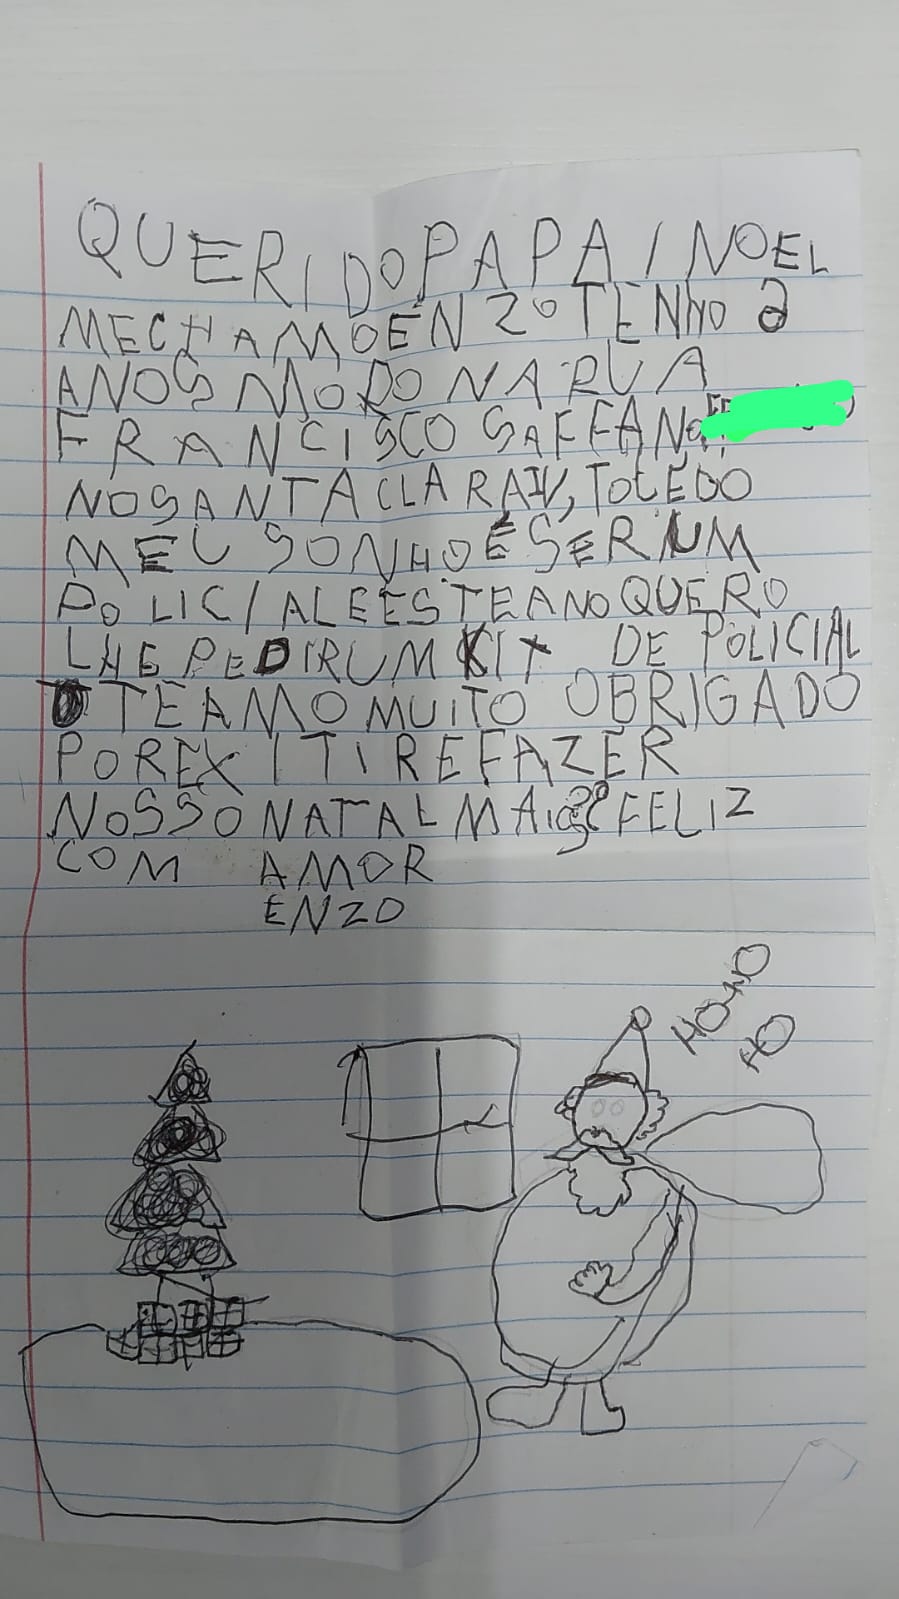 QUERIDO PAPAI NOEL
ME CHAMO ENZO TENHO 2
ANOS MORO NA RUA
FRANCISCO SAFFANO
NO SANTA CLARA IV, TOLEDO
MEU SONHO É SER UM
POLICIAL E ESTE ANO QUERO
LHE PEDIR UM KIT DE POLICIAL
TE AMO MUITO OBRIGADO
POR EXITIR E FAZER
NOSSO NATAL MAIS FELIZ
COM AMOR
ENZO
HO HO
HO